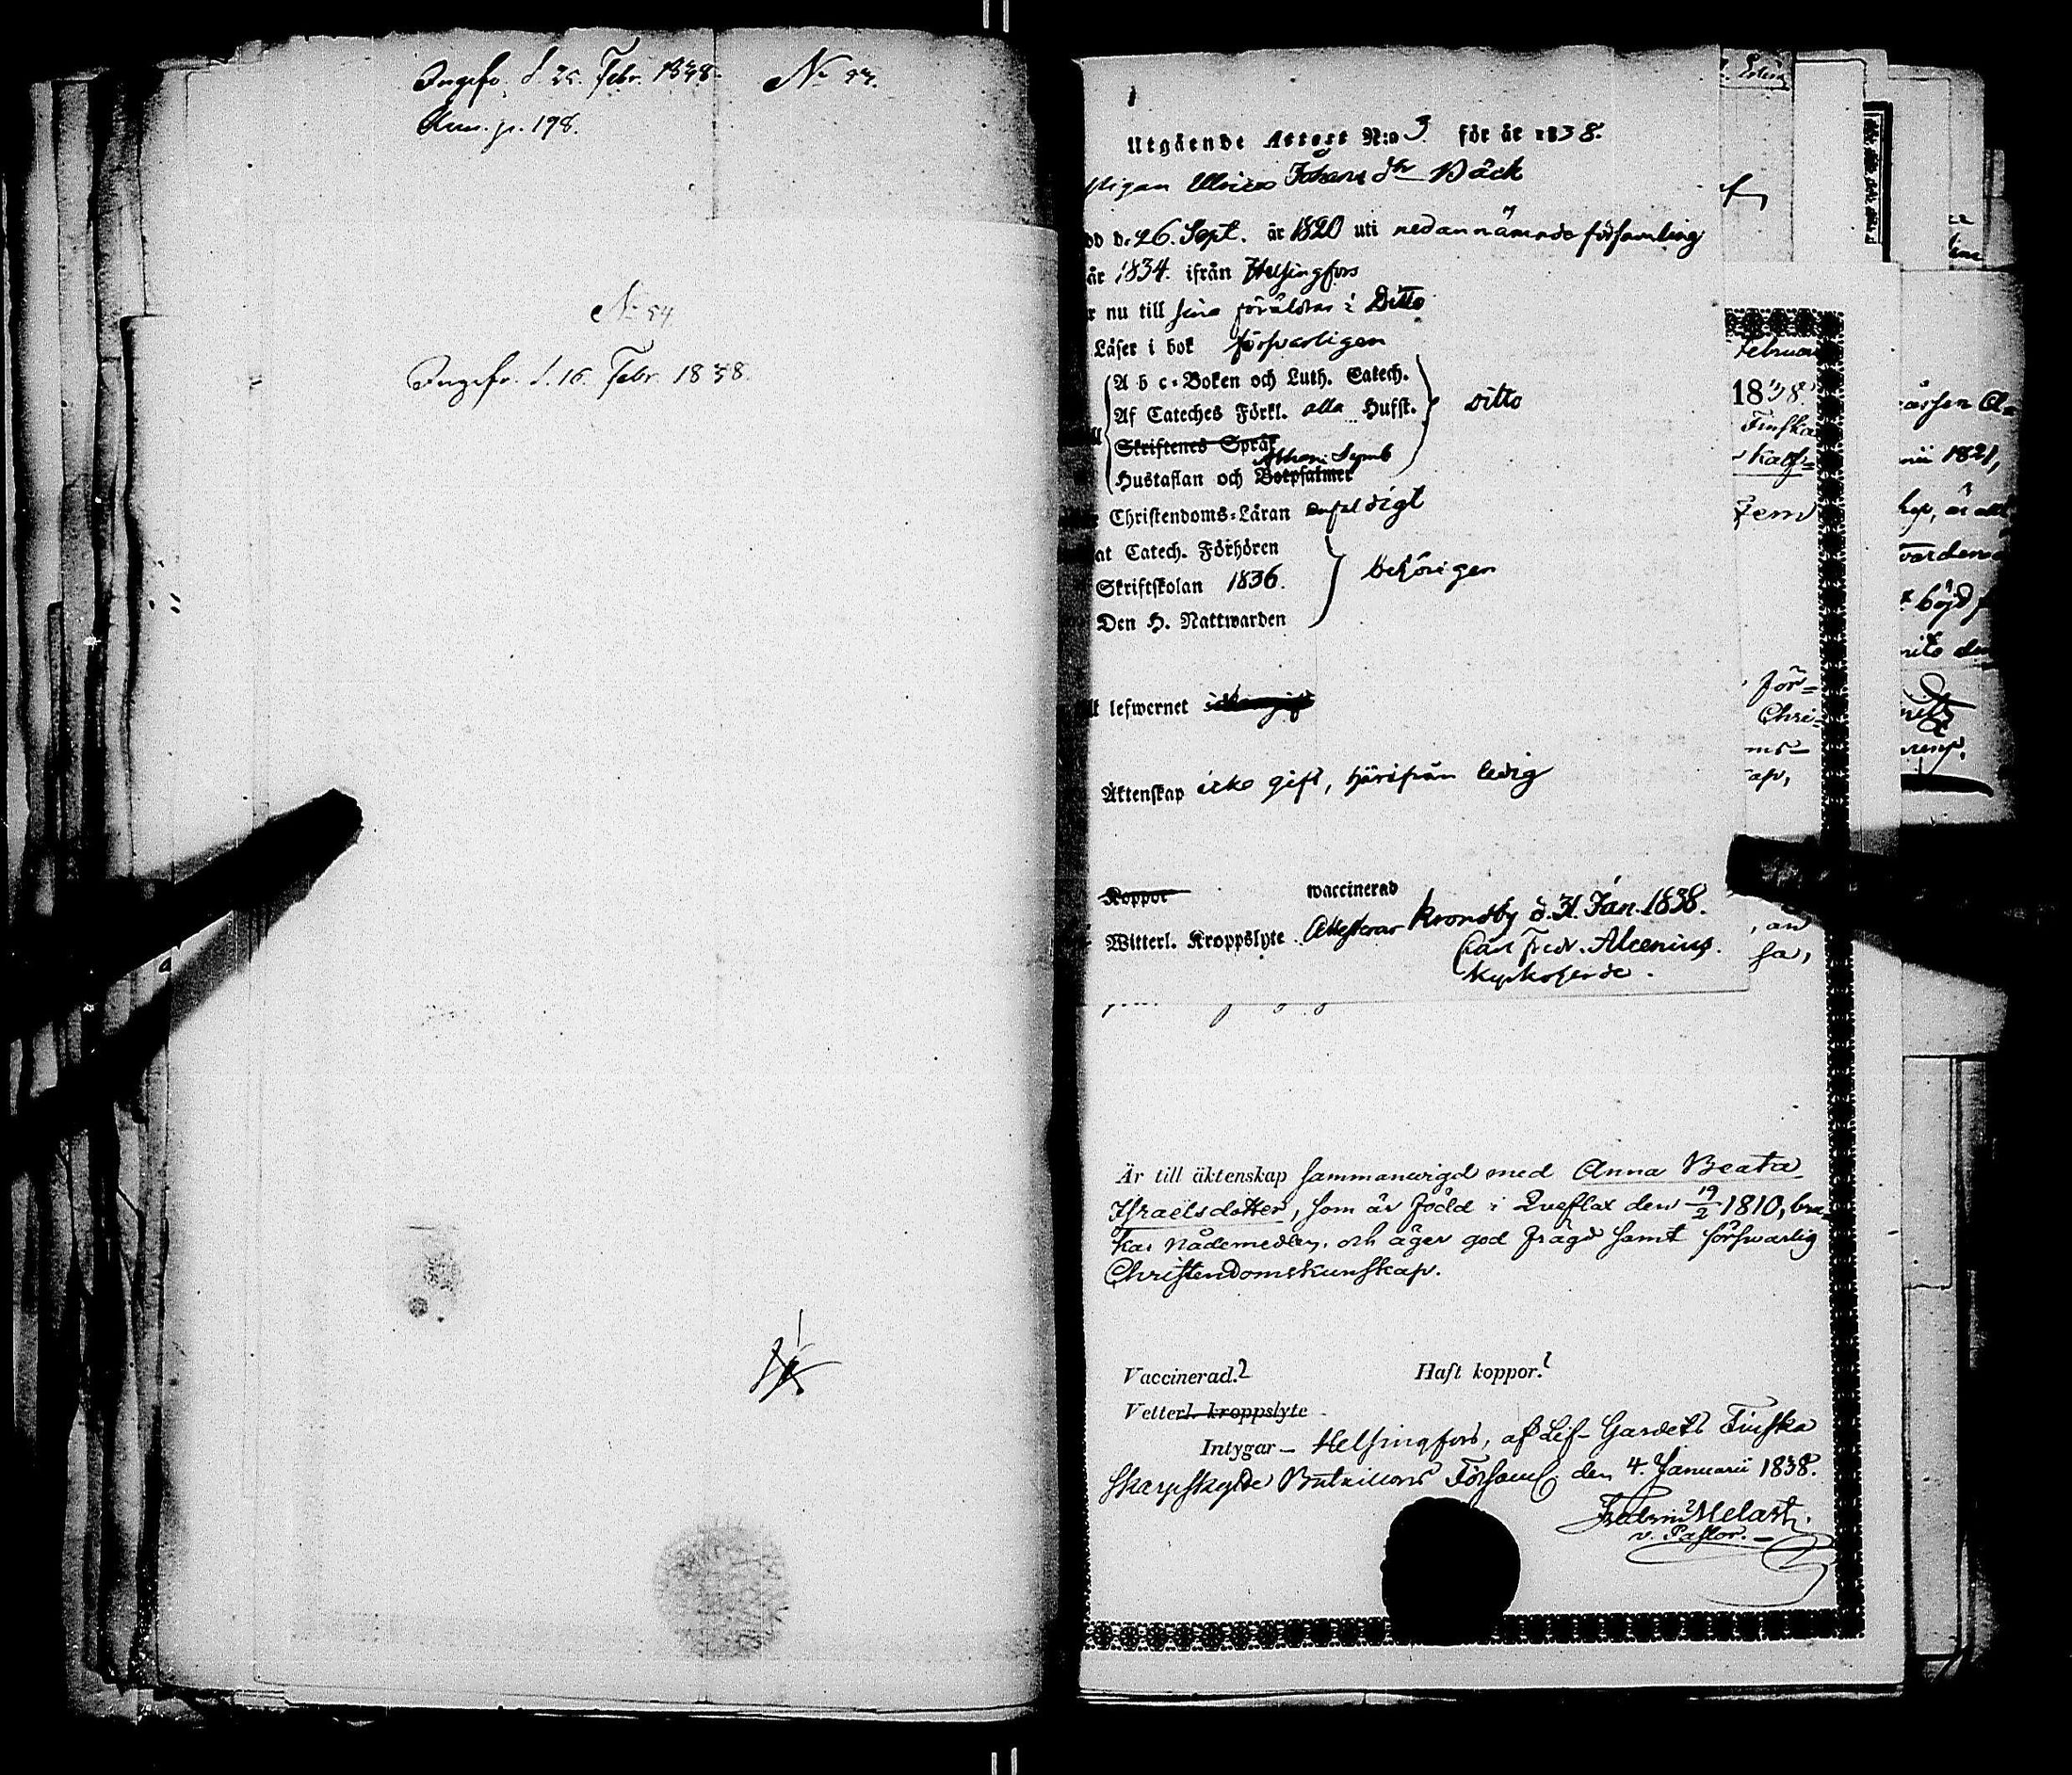 Ingefr. d. 25. Febr. 1838. No 53.
p. 198.
No 54
Ingefr. d. 16. Febr. 1838.
Utgående Attest N:o 3. för år 1838.
pigan Ulrica Johans dr Bäck
dd d. 26. Sept. år 1820 uti nedannämnde församling
år 1834. ifrån Helsingfors
r nu till sina föräldrar i Ditto
Läser i bok försvarligen
A b c-Boken och Luth. Catech.
Af Cateches Förkl. alla Hufst. Ditto
Skriftenes Språk
Athan. Symb
Hustaflan och Botpsalmer
Christendoms-Läran enfaldigt
at Catech. Förhören
Skriftskolan 1836. behörigen
Den H. Nattwarden
lefwernet
Äktenskap icke gift, härifrån ledig
Koppor waccinerad
Witterl. Kroppslyte Attesterar Kronoby d. 31. Jan. 1838.
Carl Fredr. Alcenius.
Kyrkoherde.
Är till äktenskap sammanvigd med Anna Beata
Israelsdotter, som är född i Qveflax den 19/2 1810, bru-
kar nådemedlen, och äger god frägd samt försvarlig
Christendomskunskap.
Vaccinerad.? Haft koppor.?
Vetterl. kroppslyte
Intygar – Helsingfors, af Lif-Gardets Finska
Skarpskytte Bataillons Församl. den 4. Januarii 1838.
Melart.
v. Pastor.
Februari
1838.
Finska
för-
Chri-
ap,
1821,